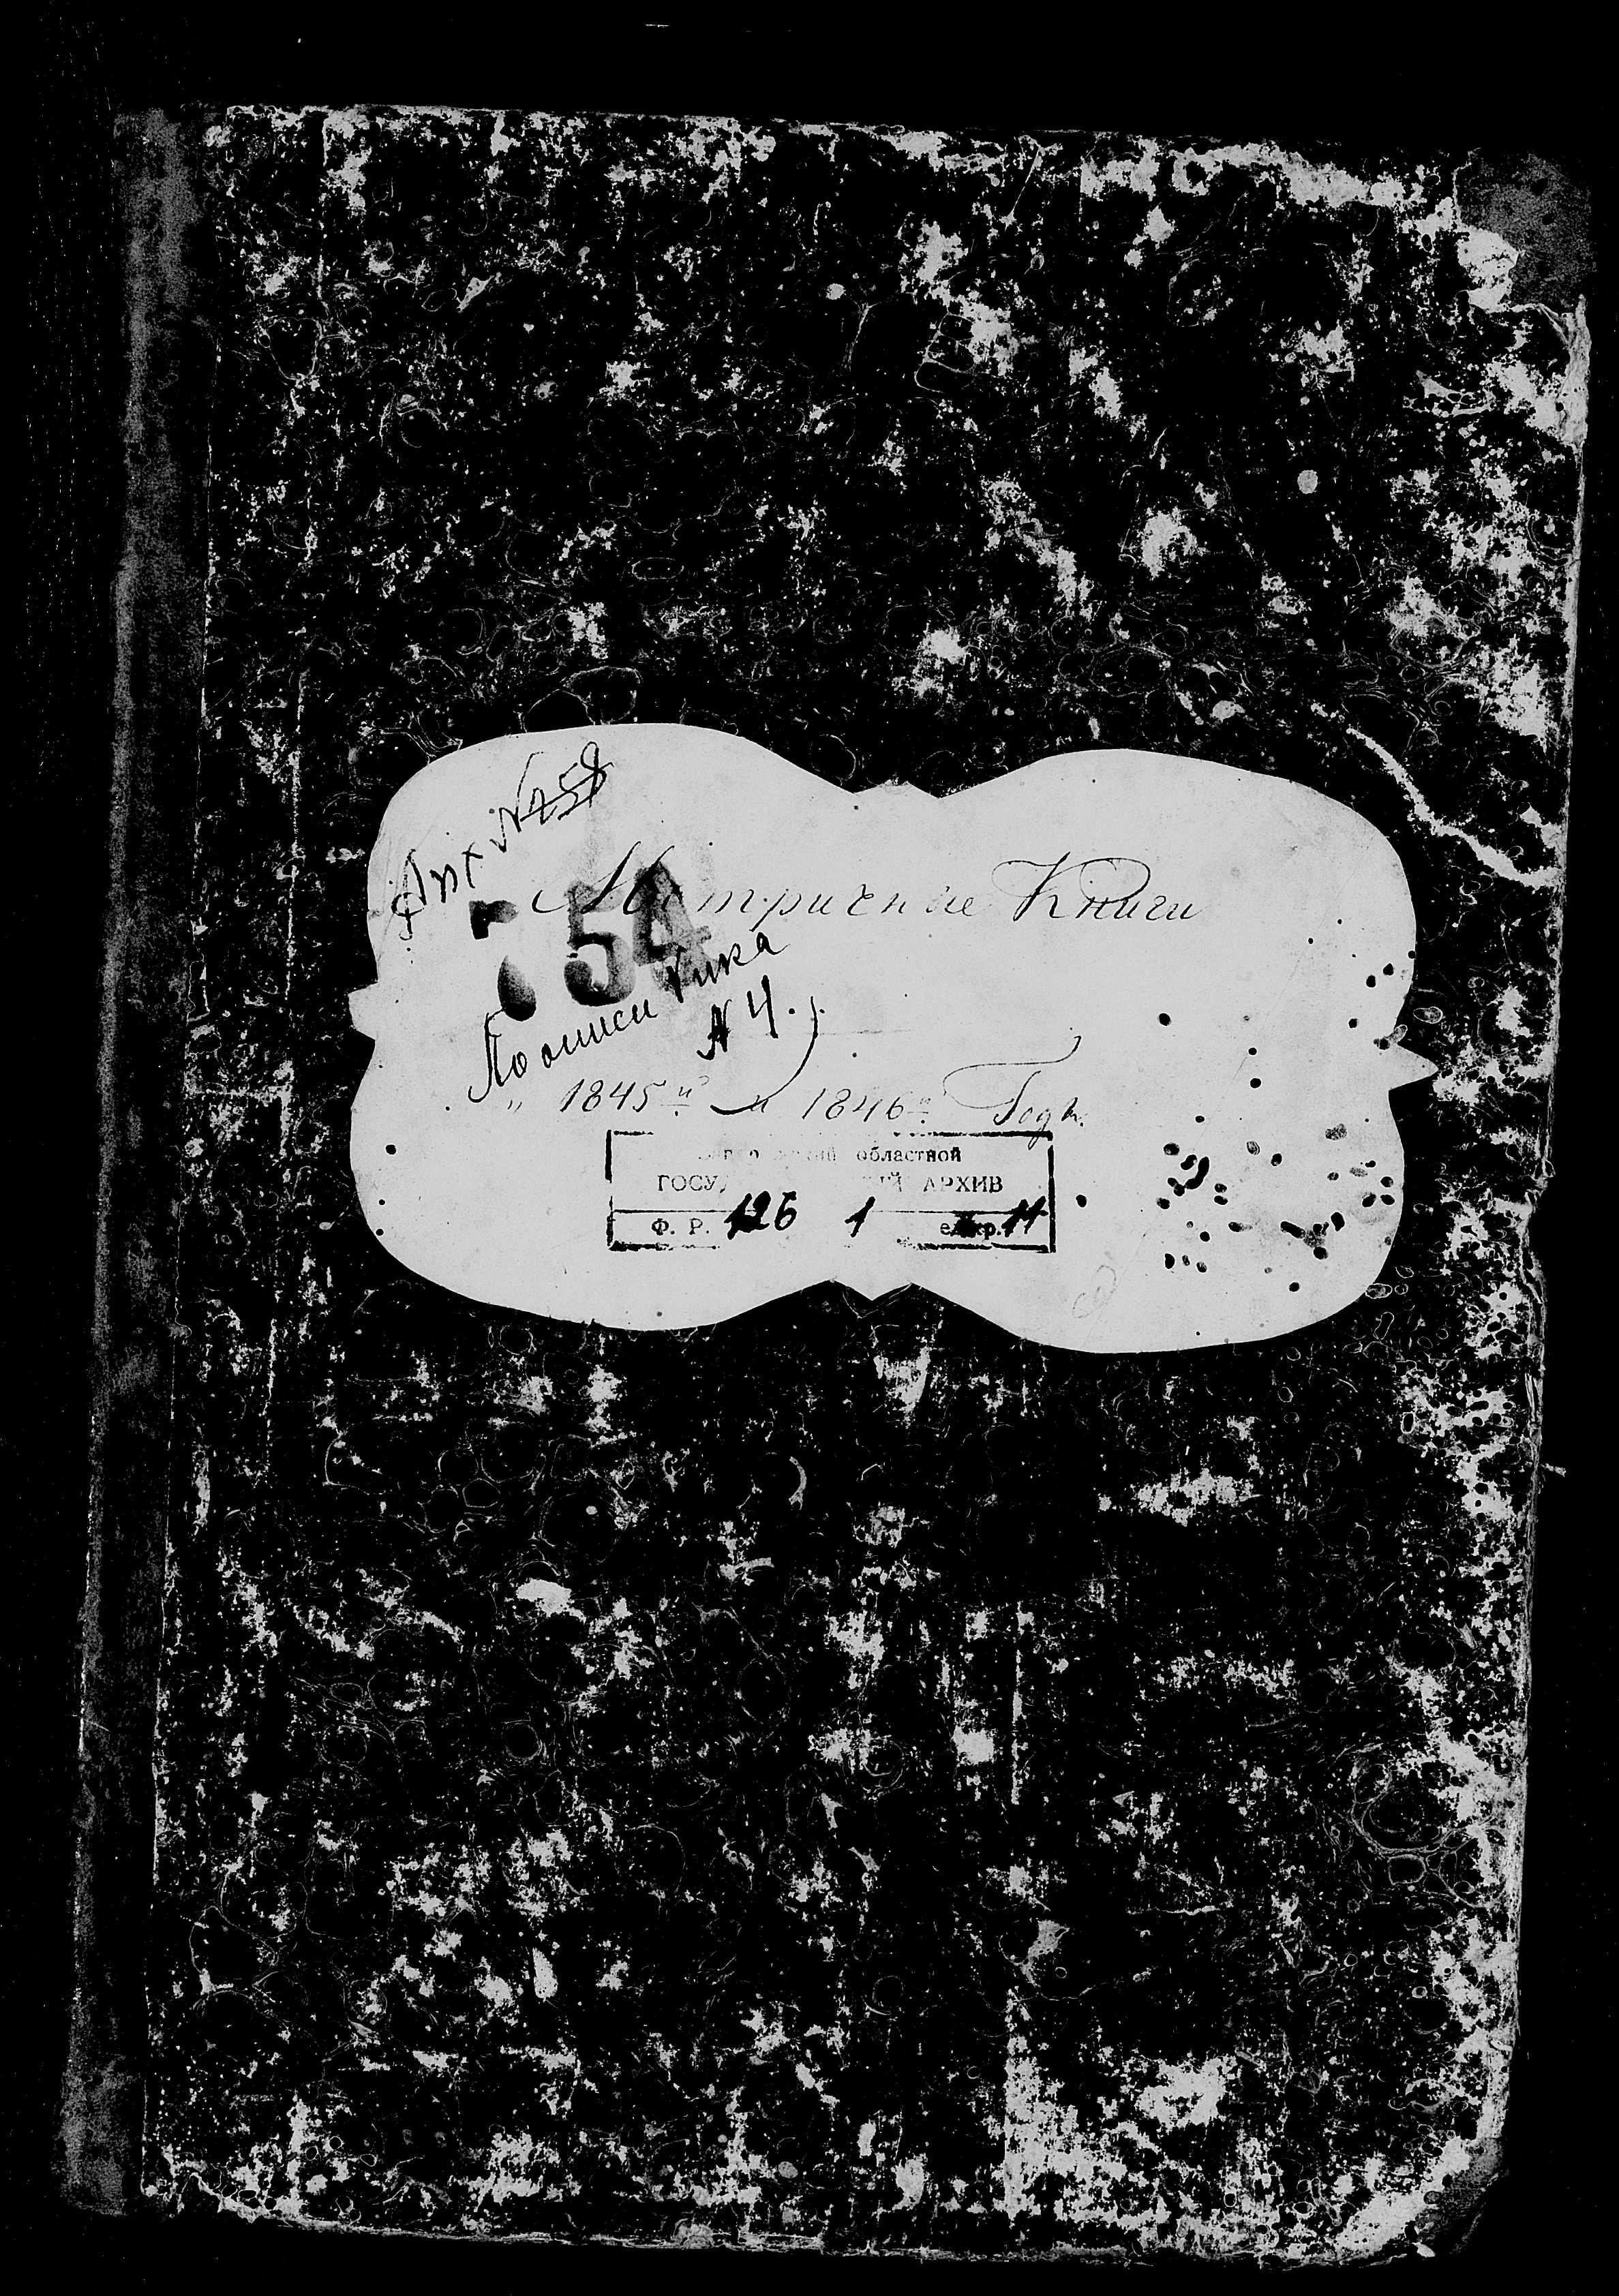 Арх № 758
Метричные Книги
754
По описи Рика
№ 4.
„ 1845й и 1846й Годъ.
областной
АРХИВ
Ф. Р. 126 1 ед. хр. 11